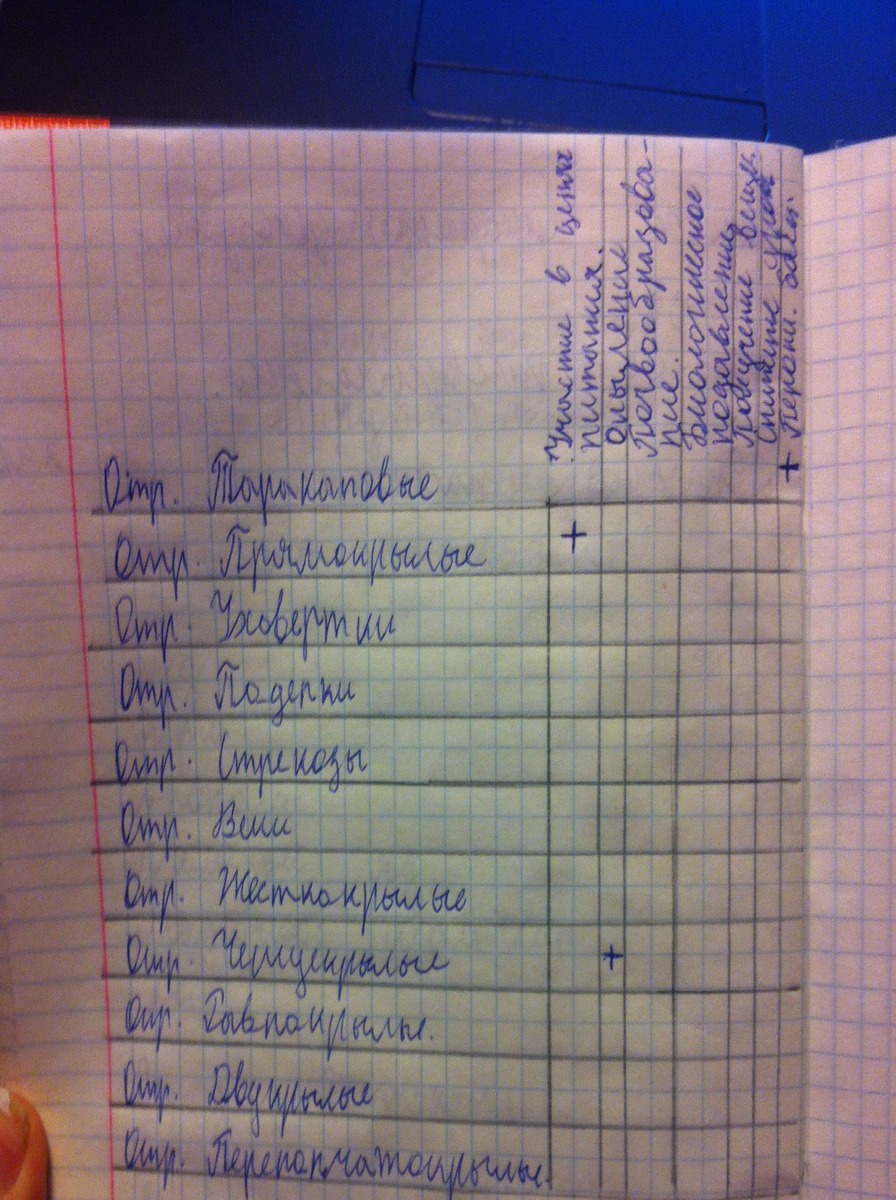 Участие в цепях
питания.
Опыление
Почвообразова-
ние.
Биологическое
подавление
Получение вещ.
Снижение урож
Перенос. забол.
Отр. Таракановые +
Отр. Прямокрылые +
Отр. Уховертки
Отр. Поденки
Отр. Стрекозы
Отр. Вши
Отр. Жесткокрылые
Отр. Чешуекрылые +
Отр. Равнокрылые.
Отр. Двукрылые
Отр. Перепончатокрылые.